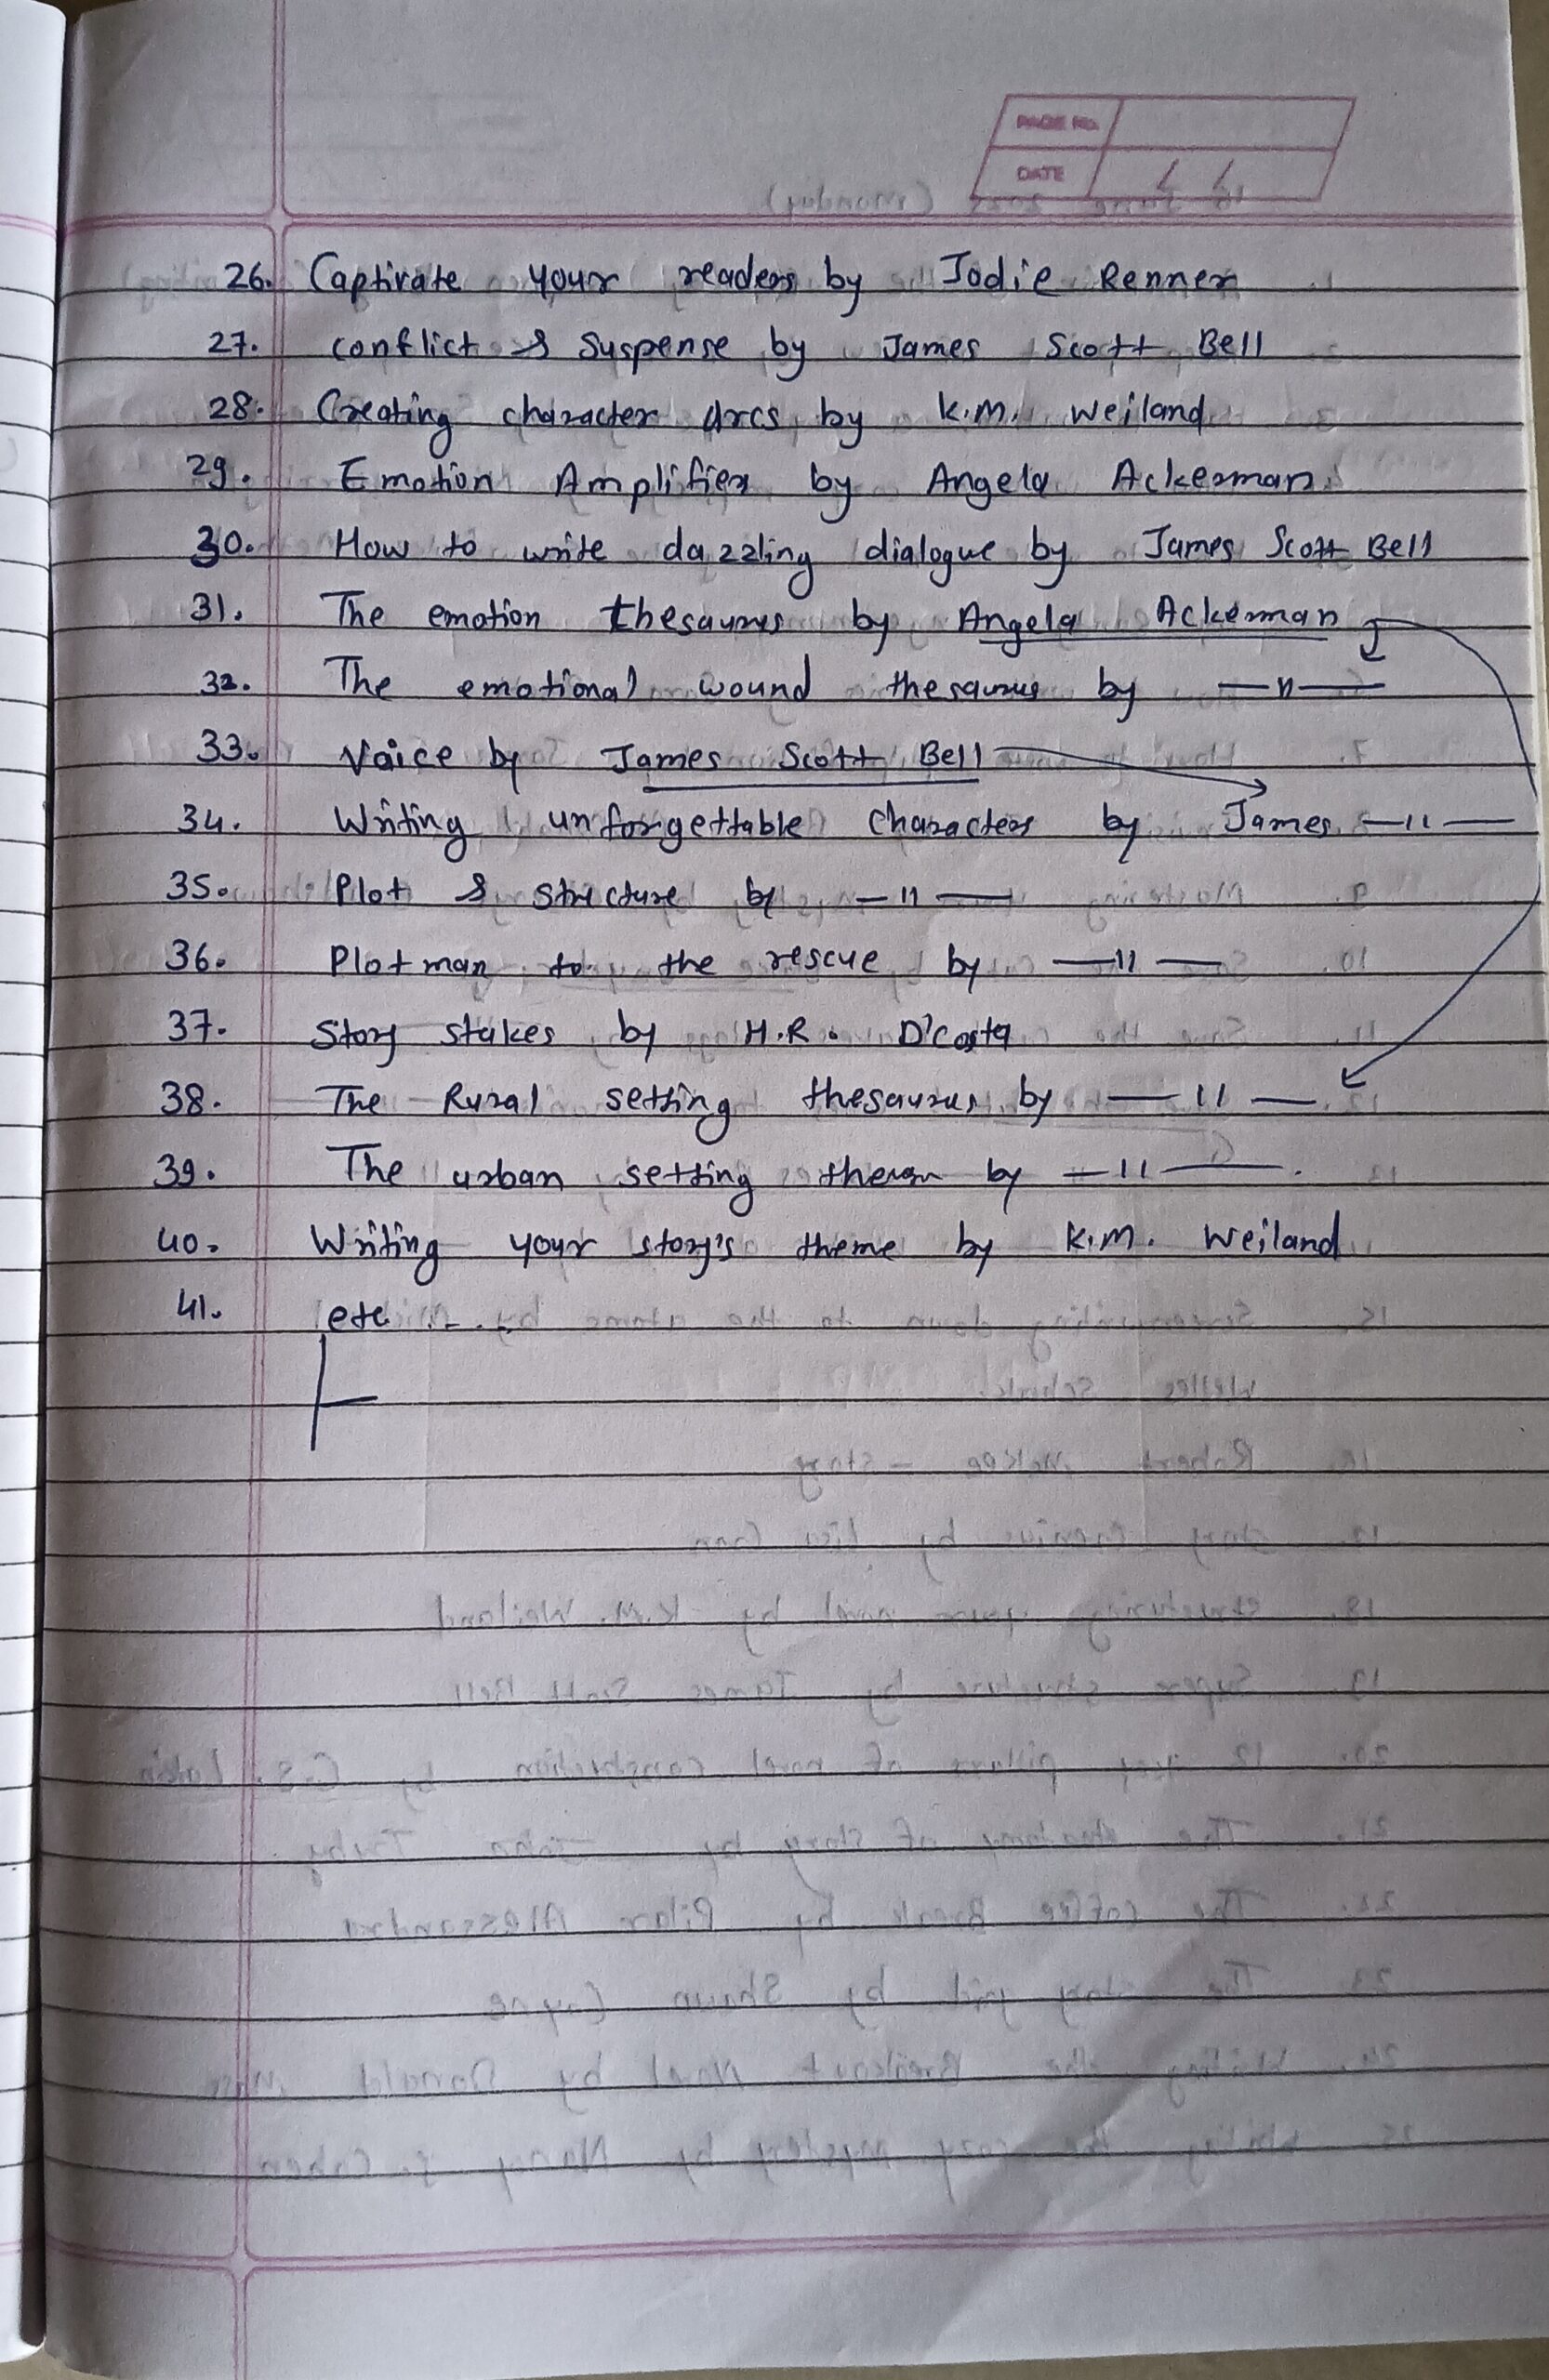 PAGE No.
DATE / /
26. Captivate your readers by Jodie Renner
27. conflict & Suspense by James Scott Bell
28. Creating character arcs by K.M. Weiland
29. Emotion Amplifier by Angela Ackerman
30. How to write dazzling dialogue by James Scott Bell
31. The emotion thesaurus by Angela Ackerman
32. The emotional wound thesaurus by —〃—
33. Voice by James Scott Bell
34. Writing unforgettable characters by James —〃—
35. Plot & structure by —〃—
36. Plotman to the rescue by —〃—
37. Story stakes by H.R. D'costa
38. The Rural setting thesaurus by —〃—
39. The urban setting by —〃—.
40. Writing your story's theme by K.M. Weiland
41. etc - . -